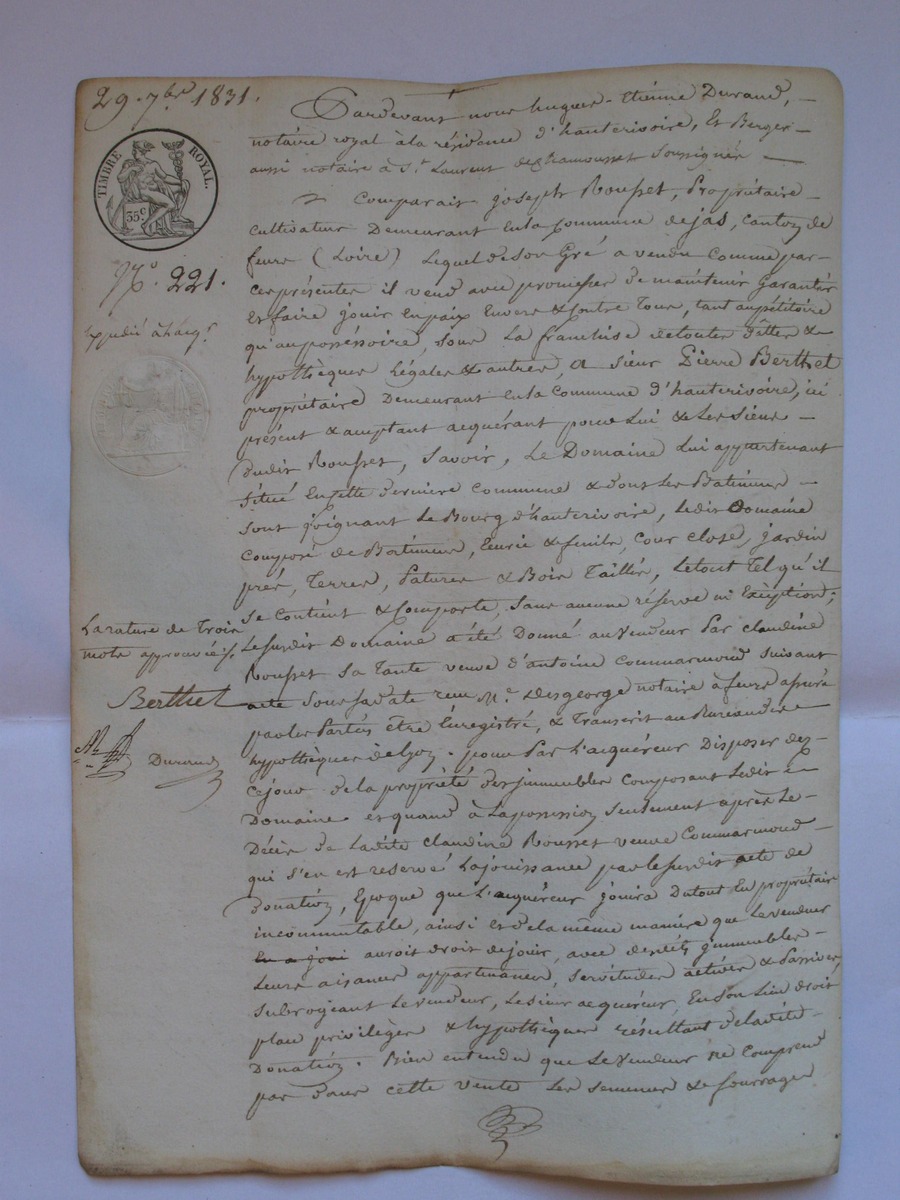 29. 7bre 1831.
TIMBRE ROYAL.
35c
N.o 221.
Expédié à l'acq.r
Pardevant nous hugues-Etienne Durand,
notaire royal à la résidence d'hauterivoire, et Berger
aussi notaire à St. Laurent de chamousset soussignés
Comparait joseph Rousset, Propriétaire
cultivateur Demeurant en la Commune de jas, canton de
feurs (Loire) Lequel de son Gré a vendu comme par
ces présentes il vend avec promesse de maintenir Garantir
et faire jouir en paix Envers & Contre Tous, tant au pétitoire
qu'au possessoire, sous La franchise de toutes dettes &
hypothèques Légales & autres, a sieur Pierre Berthet
propriétaire Demeurant en la Commune d'hauterivoire, ici
présent & acceptant acquérant pour Lui & les siens
dudit Rousset, Savoir, Le Domaine Lui appartenant
situé En cette dernière Commune & dont les Batimens
sont joignant Le Bourg d'hauterivoire, Ledit Domaine
Composé de Batimens, Ecurie & fenils, cour close, jardin
prés, Terres, Patures & Bois Taillis, Letout Tel qu'il
se Contient & Comporte, Sans aucune réserve ni Exception;
Le susdit Domaine a été Donné au Vendeur Par claudine
Rousset sa Tante veuve d'antoine Commarmond suivant
acte sous sa date reçu Me. Desgeorge notaire à feurs assuré
par les Parties être Enregistré, & Transcrit au Bureau des
hypothèques de Lyon. pour Par L'acquéreur Disposer dez
ce jour de la propriété des jmmeubles Composant Ledit
Domaine et quand à La possession seulement après Le
Décès de Ladite Claudine Rousset veuve Commarmond
qui s'en est reservé La jouissance par le susdit acte de
donation, Epoque que L'acquéreur jouira Dutout En propriétaire
incommutable, ainsi et de la même manière que Le vendeur
En a joui auroit droit de jouir, avec desdits jmmeubles
Leurs aisances appartenances, servitudes actives & Passives,
Subrogeant Le vendeur, Ledit sieur acquéreur En son Lieu droit
place privilèges & hypothèques résultant de ladite
Donation. Bien entendu que Le Vendeur ne Comprend
pas dans cette vente Les semences & fourrages
La rature de Trois
mots approuvée
Berthet
Durand